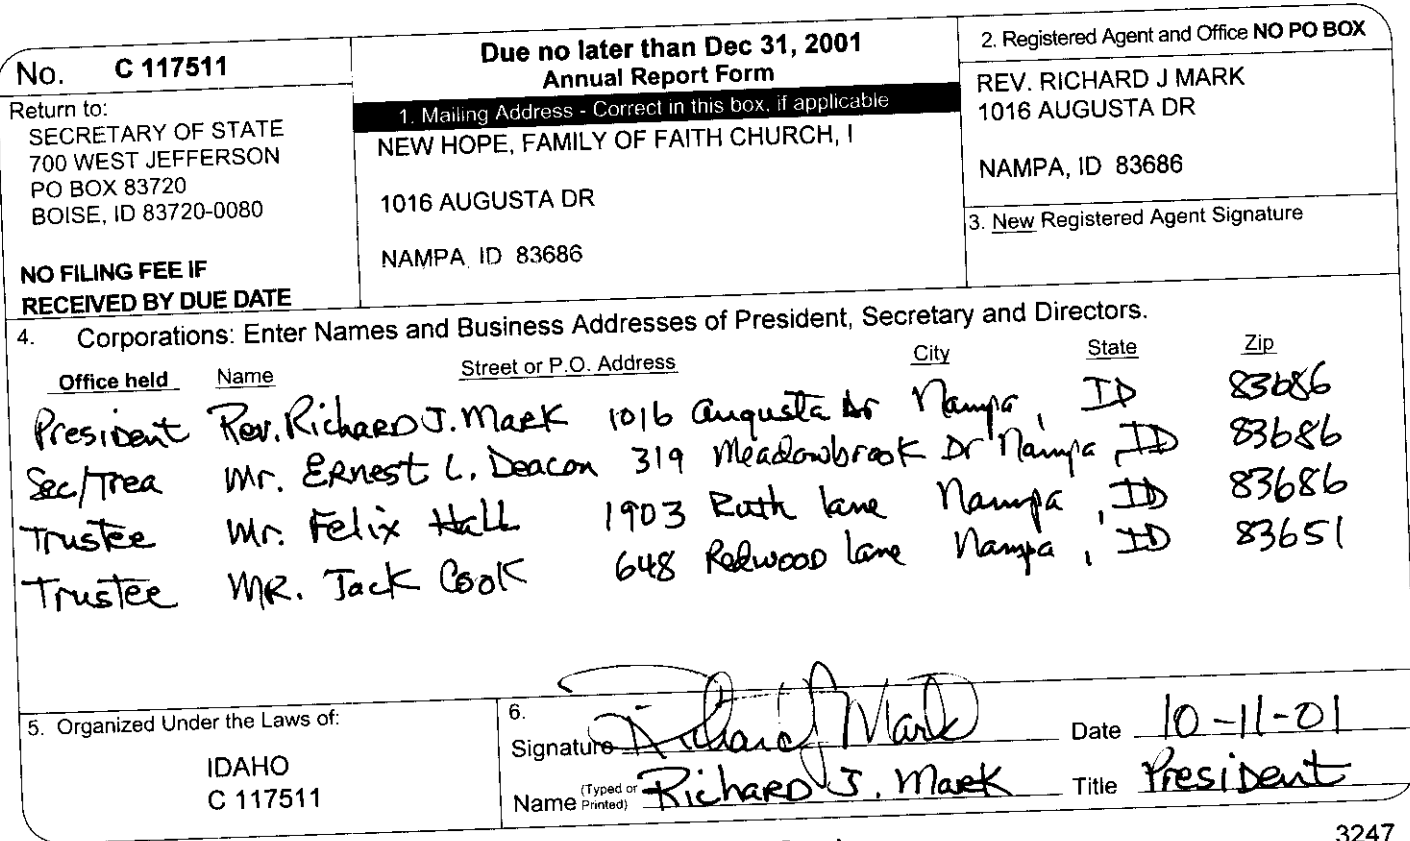 No. C 117511
Return to:
SECRETARY OF STATE
700 WEST JEFFERSON
PO BOX 83720
BOISE, ID 83720-0080
NO FILING FEE IF
RECEIVED BY DUE DATE
Due no later than Dec 31, 2001
Annual Report Form
1. Mailing Address - Correct in this box, if applicable
NEW HOPE, FAMILY OF FAITH CHURCH, I
1016 AUGUSTA DR
NAMPA, ID 83686
2. Registered Agent and Office NO PO BOX
REV. RICHARD J MARK
1016 AUGUSTA DR
NAMPA, ID 83686
3. New Registered Agent Signature
4. Corporations: Enter Names and Business Addresses of President, Secretary and Directors.
Office held Name Street or P.O. Address City State Zip
President Rev. Richard J. Mark 1016 Augusta Dr Nampa, ID 83686
Sec/Trea Mr. Ernest L. Deacon 319 Meadowbrook Dr Nampa, ID 83686
Trustee Mr. Felix Hall 1903 Ruth Lane Nampa, ID 83686
Trustee MR. Jack Cook 648 Redwood Lane Nampa, ID 83651
5. Organized Under the Laws of:
IDAHO
C 117511
6.
Signature Richard J Mark Date 10-11-01
Name (Typed or Printed) Richard J. Mark Title President
3247